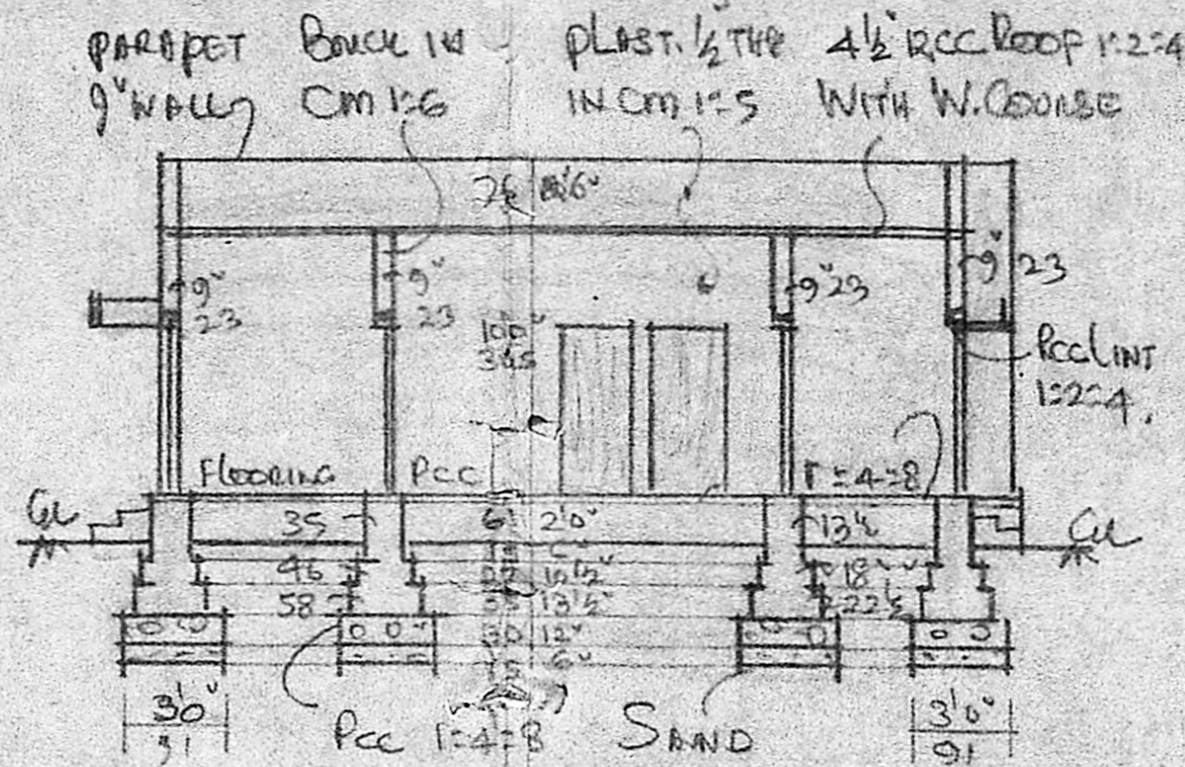 PARAPET BRICK IN PLAST. ½" THK 4½" RCC ROOF 1:2:4
9" WALL CM 1:6 IN CM 1:5 WITH W.COURSE
76
9" 9" 9" 23 9" 23
23 23
10'0"
305
RCC LINT
1:2:4.
FLOORING PCC 1:4:8
GL 35 61 2'0" 13½ GL
46 18"
58 13½" 22½
30 12"
15 6"
3'0" 3'0"
91 91
PCC 1:4:8 SAND